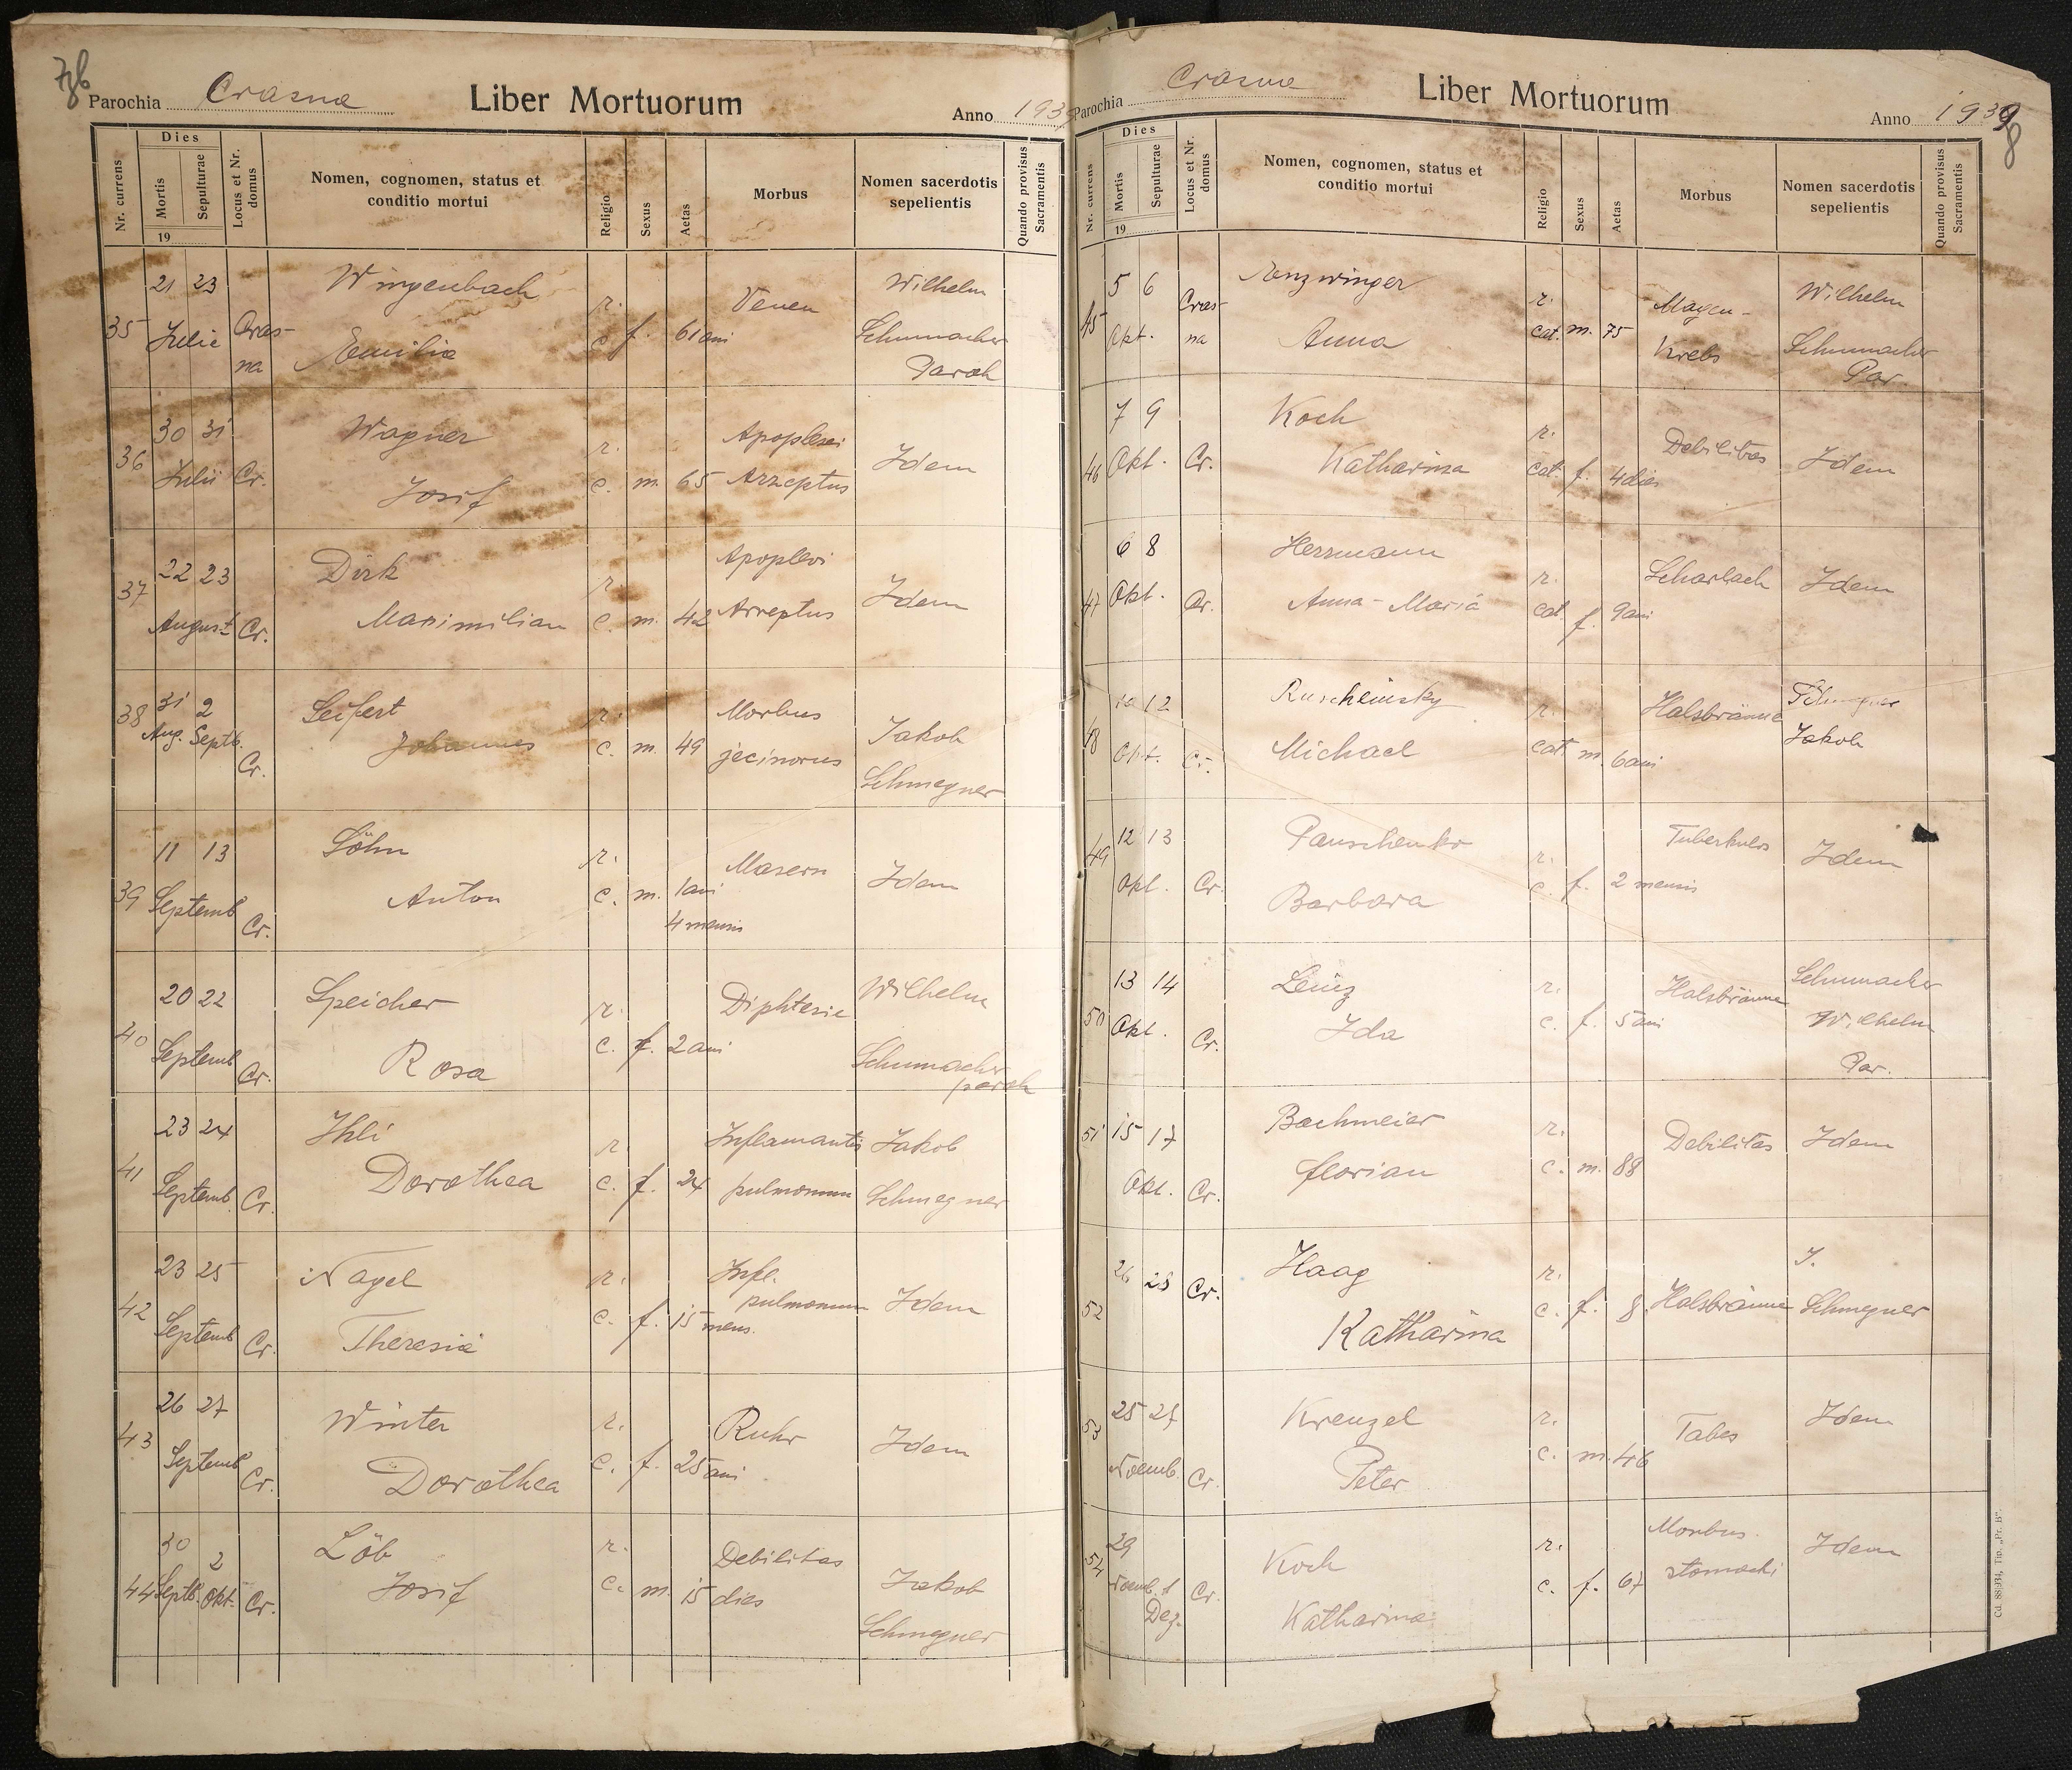 Parochia Crasna Liber Mortuorum Anno 1939
Nr. currens
Dies
Mortis
Sepulturae
19
Locus et Nr. domus
Nomen, cognomen, status et
conditio mortui
Religio
Sexus
Aetas
Morbus
Nomen sacerdotis
sepelientis
Quando provisus
Sacramentis
35 21 23 Julie Crasna Wingenbach Emilia r. c. f. 61 ani Venen Wilhelm Schumacher Paroh
36 30 31 Julii Cr. Wagner Josif r. c. m. 65 Apoplexi Arzeptus Idem
37 22 23 August Cr. Dirk Maximilian r. c. m. 42 Apoplexi Arreptus Idem
38 31 Aug. 2 Septb. Cr. Seifert Johannes r. c. m. 49 Morbus jecinorus Jakob Schmegner
39 11 13 Septemb Cr. Söhn Anton r. c. m. 1 ani 4 mensis Masern Idem
40 20 22 Septemb Cr. Speicher Rosa r. c. f. 2 ani Diphterie Wilhelm Schumacher paroh
41 23 24 Septemb. Cr. Ihli Dorothea r. c. f. 24 Inflamantis pulmonum Jakob Schmegner
42 23 25 Septemb Cr. Nagel Theresia r. c. f. 15 mens. Infl. pulmonum Idem
43 26 27 Septemb Cr. Winter Dorothea r. c. f. 25 ani Ruhr Idem
44 30 Septb. 2 Okt. Cr. Löb Josif r. c. m. 15 dies Debilitas Jakob Schmegner
Parochia Crasna Liber Mortuorum Anno 1939
Nr. currens
Dies
Mortis
Sepulturae
19
Locus et Nr. domus
Nomen, cognomen, status et
conditio mortui
Religio
Sexus
Aetas
Morbus
Nomen sacerdotis
sepelientis
Quando provisus
Sacramentis
45 5 6 Okt. Crasna Anna r. cat. m. 75 Magen-Krebs Wilhelm Schumacher Par.
46 7 9 Okt. Cr. Koch Katharina r. cat. f. 4 dies Debilitas Idem
47 6 8 Okt. Cr. Herrmann Anna-Maria r. cat. f. 9 ani Scharlach Idem
48 10 12 Okt. Cr. Ruscheinsky Michael r. cat m. 6 ani Halsbräune Schmegner Jakob
49 12 13 Okt. Cr. Pauschenko Barbara r. c. f. 2 mensis Tuberkulos Idem
50 13 14 Okt. Cr. Leinz Ida r. c. f. 5 ani Halsbräune Schumacher Wilhelm Par.
51 15 17 Okt. Cr. Bachmeier Florian r. c. m. 88 Debilitas Idem
52 26 28 Cr. Haag Katharina r. c. f. 8 Halsbräune J. Schmegner
53 25 27 Noemb. Cr. Krenzel Peter r. c. m. 46 Tabes Idem
54 29 Noemb. 1 Dez. Cr. Koch Katharina r. c. f. 67 Morbus stomachi Idem